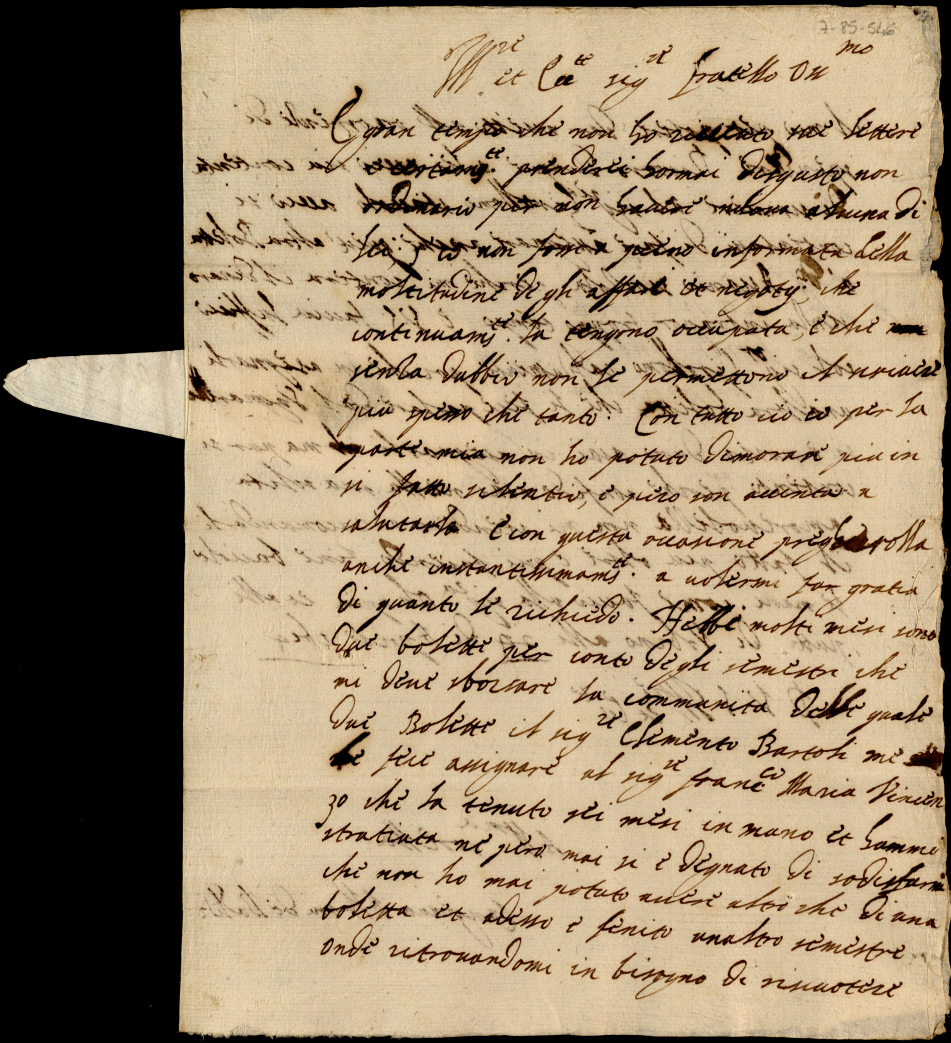 7-85-546
Ill.re et Ecc.te sig.re fratello On.mo
È gran tempo che non ho riceuto sue lettere
e certam.te prenderei hormai disgusto non
ordinario per non havere nuova alcuna di
lei, s'io non fossi a pieno informata della
moltitudine degli affari et negotij, che
continuam.te la tengono occupata, e che non
senza dubbio non le permettono il scrivere
più spesso che tanto. Con tutto ciò io per la
parte mia non ho potuto dimorare più in
si fatto silentio, e però son accinta a
salutarla e con questa occasione pregherolla
anche instantissimam.te a volermi far gratia
di quanto le richiedo. Hebbi molti mesi sono
due bolette per conto degli semestri che
mi deve sborsare la communita delle quale
due Bolette il sig.re Clemente Bartoli me
le fece assignare al sig.re Franc.co Maria Vincen
zo che la tenuto sei mesi in mano et hammi
stratiata ne però mai si è degnato di sodisfarmi
che non ho mai potuto avere altro che di una
boletta et adesso è fenito unaltro semestre
onde ritrovandomi in bisogno di riscuotere